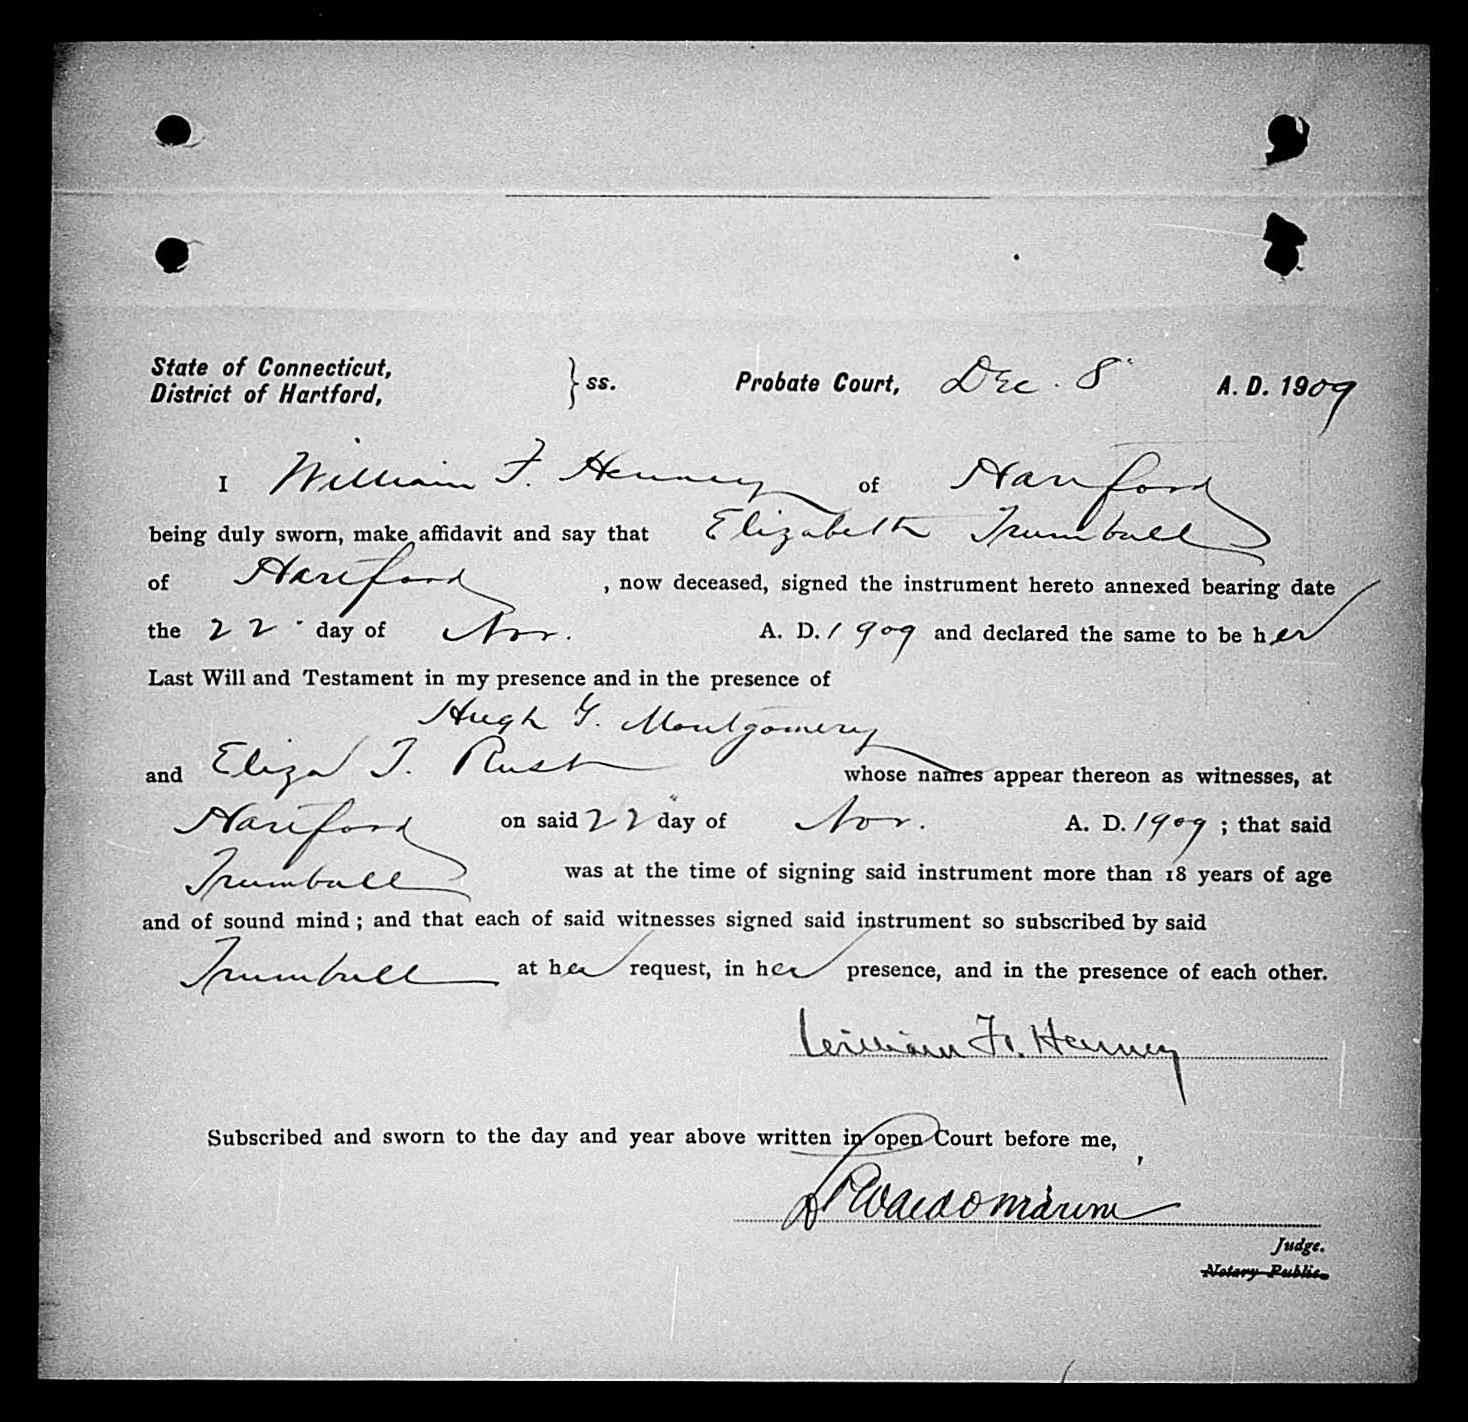 State of Connecticut,
District of Hartford, } ss. Probate Court, Dec. 8 A. D. 1909
I William F. Henney of Hartford
being duly sworn, make affidavit and say that Elizabeth Trumbull
of Hartford , now deceased, signed the instrument hereto annexed bearing date
the 22" day of Nov. A. D. 1909 and declared the same to be her
Last Will and Testament in my presence and in the presence of
Hugh G. Montgomery
and Eliza T. Rust whose names appear thereon as witnesses, at
Hartford on said 22" day of Nov. A. D. 1909 ; that said
Trumbull was at the time of signing said instrument more than 18 years of age
and of sound mind ; and that each of said witnesses signed said instrument so subscribed by said
Trumbull at her request, in her presence, and in the presence of each other.
William F. Henney
Subscribed and sworn to the day and year above written in open Court before me,
Judge.
Notary Public.